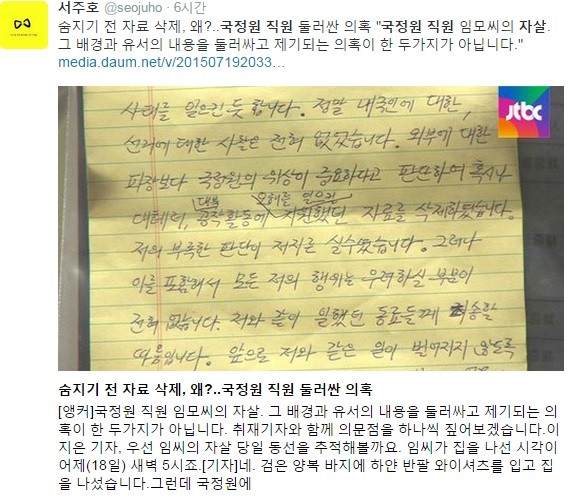 서주호 @seojuho · 6시간
숨지기 전 자료 삭제, 왜?..국정원 직원 둘러싼 의혹 "국정원 직원 임모씨의 자살.
그 배경과 유서의 내용을 둘러싸고 제기되는 의혹이 한 두가지가 아닙니다."
media.daum.net/v/201507192033…
jtbc
사태를 일으킨듯 합니다. 정말 내국인에 대한,
선거에 대한 사찰은 전혀 없었습니다. 외부에 대한
파장보다 국정원의 위상이 중요하다고 판단하여 혹시나
대북 오해를 일으킬
대테러, 공작활동에 지원했던 자료를 삭제하였습니다.
저의 부족한 판단이 저지른 실수였습니다. 그러나
이를 포함해서 모든 저의 행위는 우려하실 부분이
전혀 없습니다. 저와 같이 일했던 동료들께 죄송할
따름입니다. 앞으로 저와 같은 일이 벌어지지 않도록
숨지기 전 자료 삭제, 왜?..국정원 직원 둘러싼 의혹
[앵커]국정원 직원 임모씨의 자살. 그 배경과 유서의 내용을 둘러싸고 제기되는 의
혹이 한 두가지가 아닙니다. 취재기자와 함께 의문점을 하나씩 짚어보겠습니다.이
지은 기자, 우선 임씨의 자살 당일 동선을 추적해볼까요. 임씨가 집을 나선 시각이
어제(18일) 새벽 5시죠.[기자]네. 검은 양복 바지에 하얀 반팔 와이셔츠를 입고 집
을 나섰습니다.그런데 국정원에